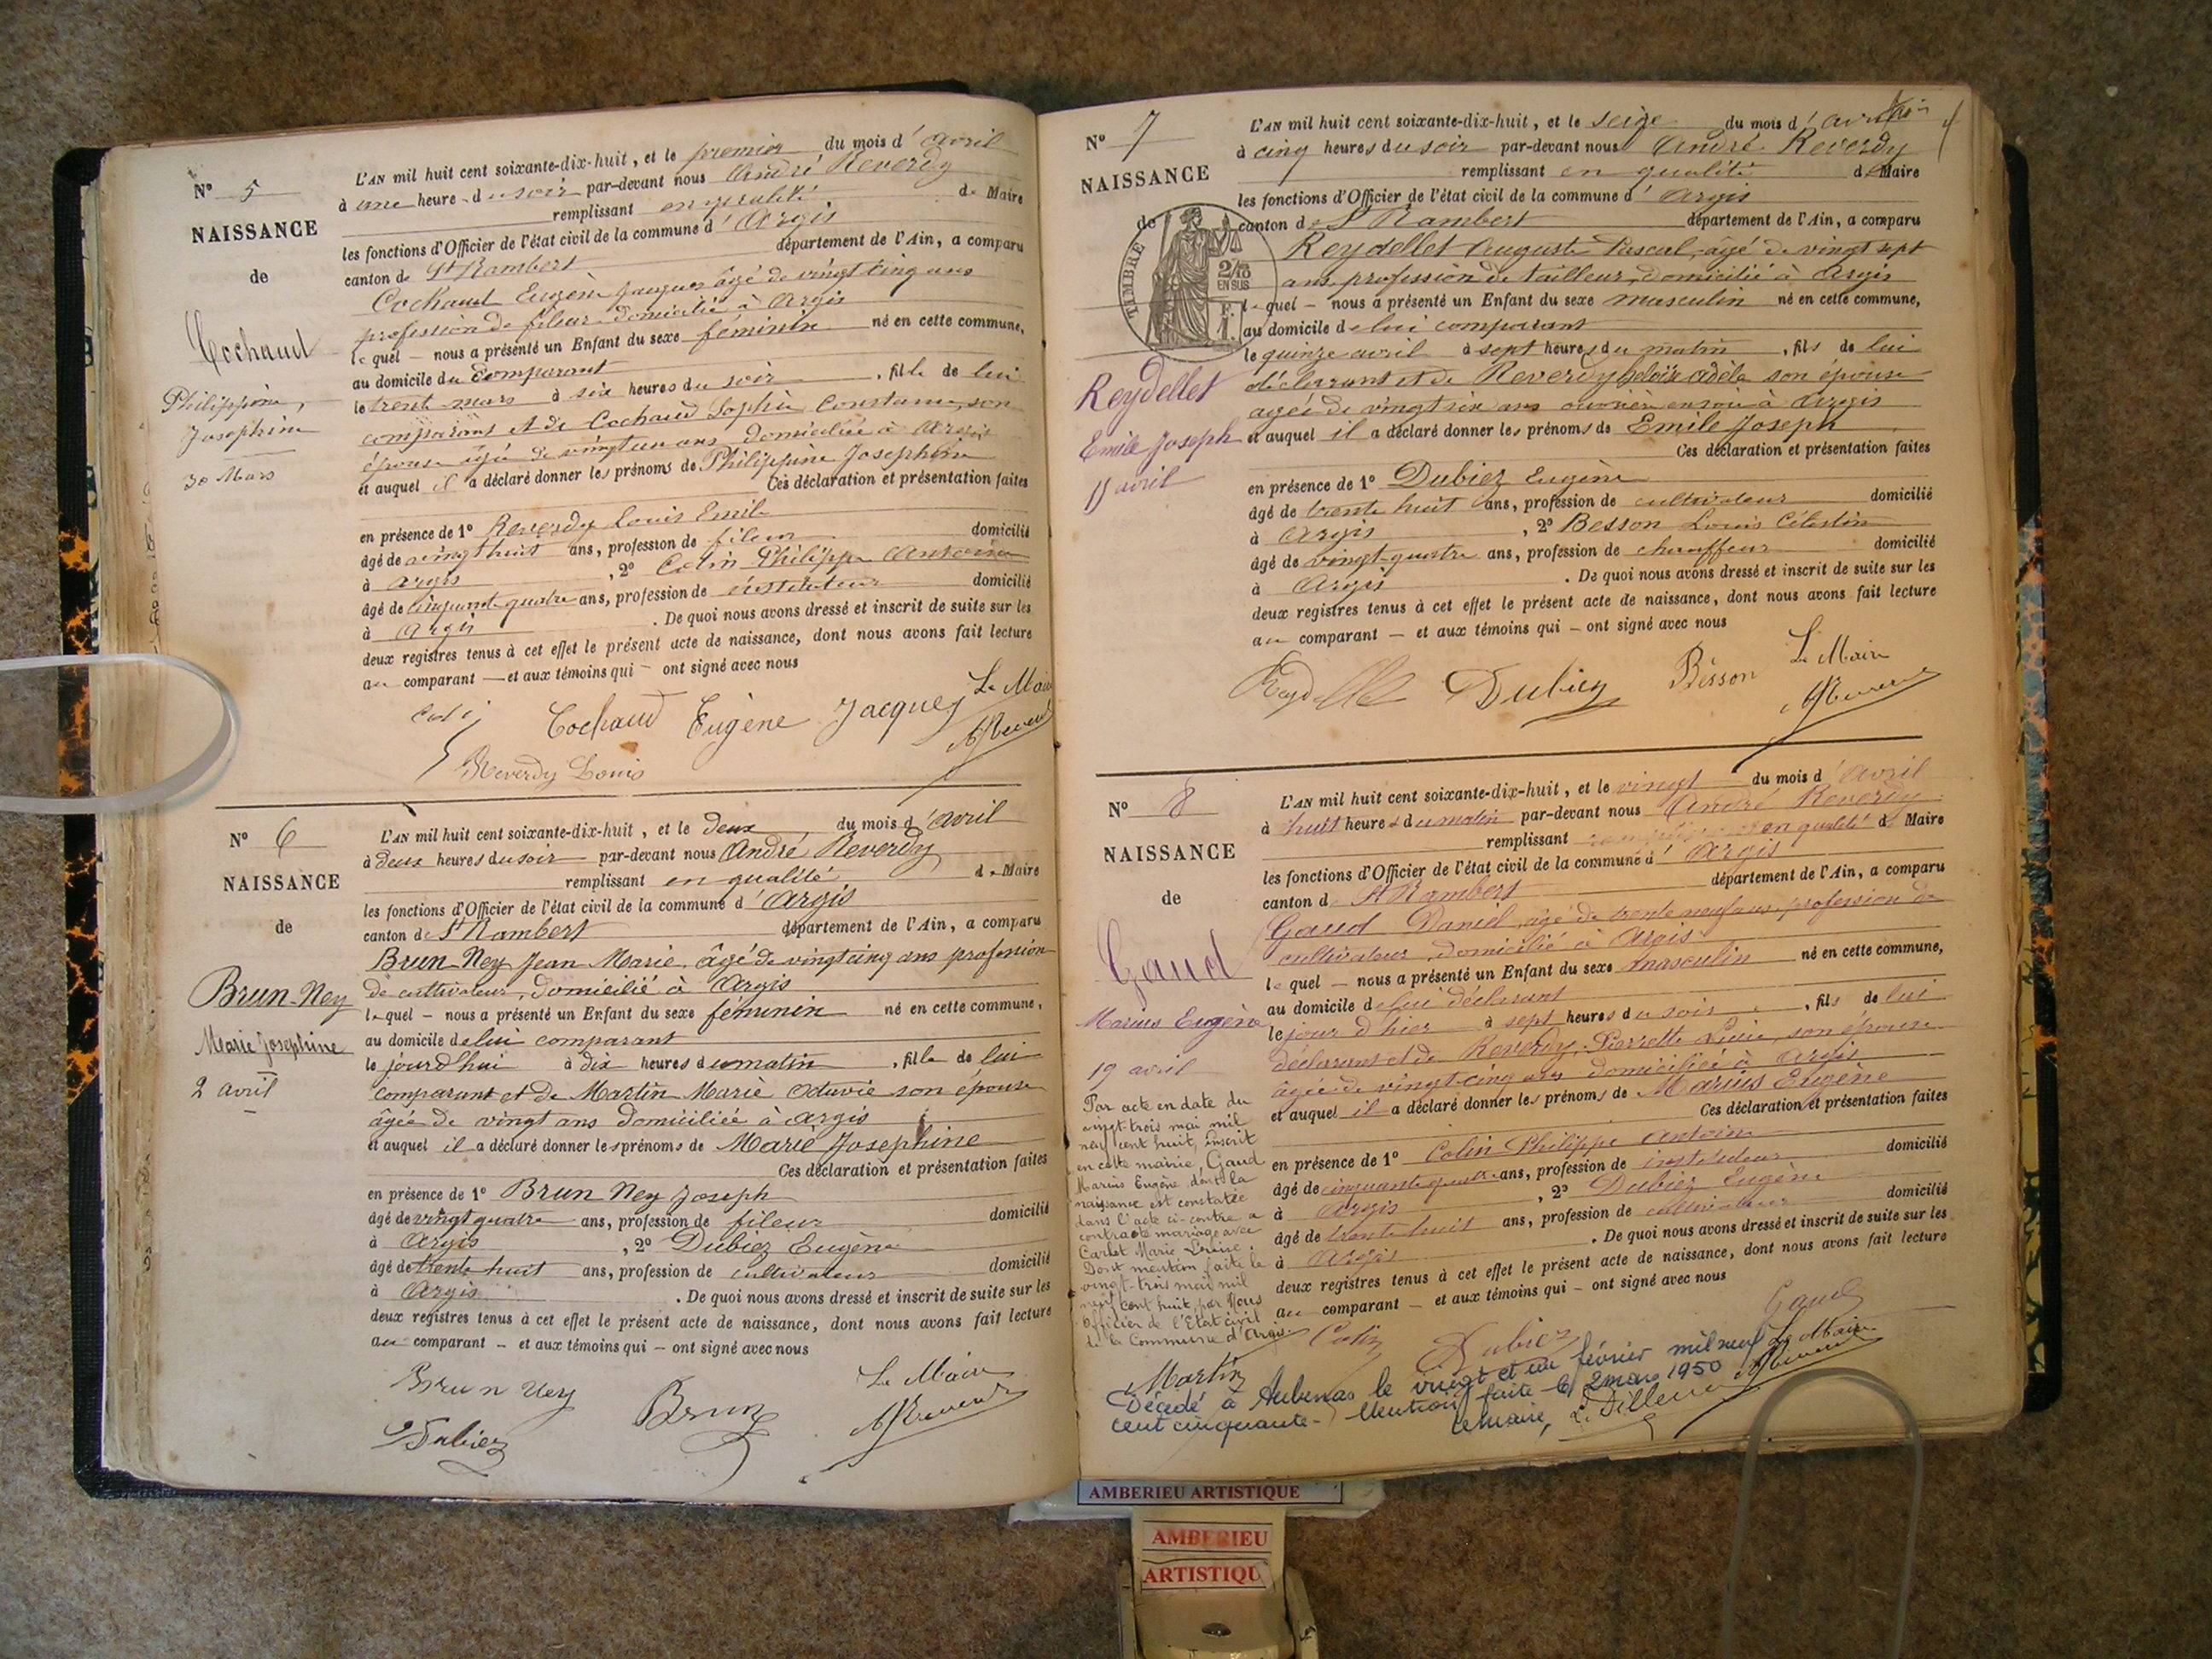 N° 5
NAISSANCE
de
Cochaud
Philippine,
Josephine
30 Mars
L'AN mil huit cent soixante-dix-huit, et le premier du mois d'avril
à une heure du soir par-devant nous André Reverdy
remplissant en qualité de Maire
les fonctions d'Officier de l'état civil de la commune d'Argis
canton de St Rambert département de l'Ain, a comparu
Cochaud Eugène Jacques âgé de vingt cinq ans
profession de fileur domicilié à Argis
lequel – nous a présenté un Enfant du sexe féminin né en cette commune,
au domicile du Comparant
le trente mars à six heures du soir, fille de lui
comparant et de Cochaud Sophie Constance, son
épouse âgée de vingt un ans domiciliée à Argis
et auquel il a déclaré donner les prénoms de Philippine Josephine
Ces déclaration et présentation faites
en présence de 1° Reverdy Louis Emile
âgé de vingt huit ans, profession de fileur domicilié
à Argis, 2° Colin Philippe Antoine
âgé de cinquante quatre ans, profession de instituteur domicilié
à Argis. De quoi nous avons dressé et inscrit de suite sur les
deux registres tenus à cet effet le présent acte de naissance, dont nous avons fait lecture
au comparant — et aux témoins qui – ont signé avec nous
Colin Cochaud Eugène Jacques Le Maire
Reverdy Louis AReverdy
N° 6
NAISSANCE
de
Brun-Ney
Marie Josephine
2 avril
L'AN mil huit cent soixante-dix-huit, et le deux du mois d'avril
à deux heures du soir par-devant nous André Reverdy
remplissant en qualité de Maire
les fonctions d'Officier de l'état civil de la commune d'Argis
canton de St Rambert département de l'Ain, a comparu
Brun-Ney Jean Marie, âgé de vingt cinq ans profession
de cultivateur, domicilié à Argis
lequel – nous a présenté un Enfant du sexe féminin né en cette commune,
au domicile de lui comparant
le jourd'hui à dix heures du matin, fille de lui
comparant et de Martin Marie son épouse
âgée de vingt ans domiciliée à Argis
et auquel il a déclaré donner les prénoms de Marie Josephine
Ces déclaration et présentation faites
en présence de 1° Brun Ney Joseph
âgé de vingt quatre ans, profession de fileur domicilié
à Argis, 2° Dubiez Eugène
âgé de trente huit ans, profession de cultivateur domicilié
à Argis. De quoi nous avons dressé et inscrit de suite sur les
deux registres tenus à cet effet le présent acte de naissance, dont nous avons fait lecture
au comparant – et aux témoins qui – ont signé avec nous
Brun Ney Brun Le Maire
Dubiez AReverdy
N° 7
NAISSANCE
de
TIMBRE
2/10
EN SUS
F.
1.
Reydellet
Emile Joseph
15 avril
L'AN mil huit cent soixante-dix-huit, et le seize du mois d'avril
à cinq heures du soir par-devant nous André Reverdy
remplissant en qualité de Maire
les fonctions d'Officier de l'état civil de la commune d'Argis
canton de St Rambert département de l'Ain, a comparu
Reydellet Auguste Pascal, âgé de vingt sept
ans profession de tailleur, domicilié à Argis
lequel – nous a présenté un Enfant du sexe masculin né en cette commune,
au domicile de lui comparant
le quinze avril à sept heures du matin, fils de lui
déclarant et de Reverdy Héloïse Adèle son épouse
agée de vingt six ans ouvrière en soie à Argis
et auquel il a déclaré donner les prénoms de Emile Joseph
Ces déclaration et présentation faites
en présence de 1° Dubiez Eugène
âgé de trente huit ans, profession de cultivateur domicilié
à Argis, 2° Besson Louis Célestin
âgé de vingt-quatre ans, profession de chauffeur domicilié
à Argis. De quoi nous avons dressé et inscrit de suite sur les
deux registres tenus à cet effet le présent acte de naissance, dont nous avons fait lecture
au comparant – et aux témoins qui – ont signé avec nous
Reydellet Dubiez Besson Le Maire
AReverdy
N° 8
NAISSANCE
de
Gaud
Marius Eugène
19 avril
Par acte en date du
vingt-trois mai mil
neuf cent huit, inscrit
en cette mairie, Gaud
Marius Eugène dont la
naissance est constatée
dans l'acte ci-contre a
contracté mariage avec
Carlot Marie Louise.
Dont mention faite le
vingt-trois mai mil
neuf cent huit, par Nous
Officier de l'Etat civil
de la Commune d'Argis
Martin
L'AN mil huit cent soixante-dix-huit, et le vingt du mois d'avril
à huit heures du matin par-devant nous André Reverdy
remplissant en qualité de Maire
les fonctions d'Officier de l'état civil de la commune d'Argis
canton de St Rambert département de l'Ain, a comparu
Gaud Daniel, âgé de trente neuf ans, profession de
cultivateur, domicilié à Argis
lequel – nous a présenté un Enfant du sexe masculin né en cette commune,
au domicile de lui déclarant
le jour d'hier à sept heures du soir, fils de lui
déclarant et de Reverdy, Pierrette Lucie, son épouse
âgée de vingt-cinq ans domiciliée à Argis
et auquel il a déclaré donner les prénoms de Marius Eugène
Ces déclaration et présentation faites
en présence de 1° Colin Philippe Antoine
âgé de cinquante quatre ans, profession de instituteur domicilié
à Argis, 2° Dubiez Eugène
âgé de trente huit ans, profession de cultivateur domicilié
à Argis. De quoi nous avons dressé et inscrit de suite sur les
deux registres tenus à cet effet le présent acte de naissance, dont nous avons fait lecture
au comparant – et aux témoins qui – ont signé avec nous
Colin Dubiez Gaud
Le Maire
AReverdy
Décédé à Aubenas le vingt et un février mil neuf
cent cinquante. Mention faite le 2 mars 1950
Le Maire,
AMBERIEU ARTISTIQUE
AMBERIEU
ARTISTIQU